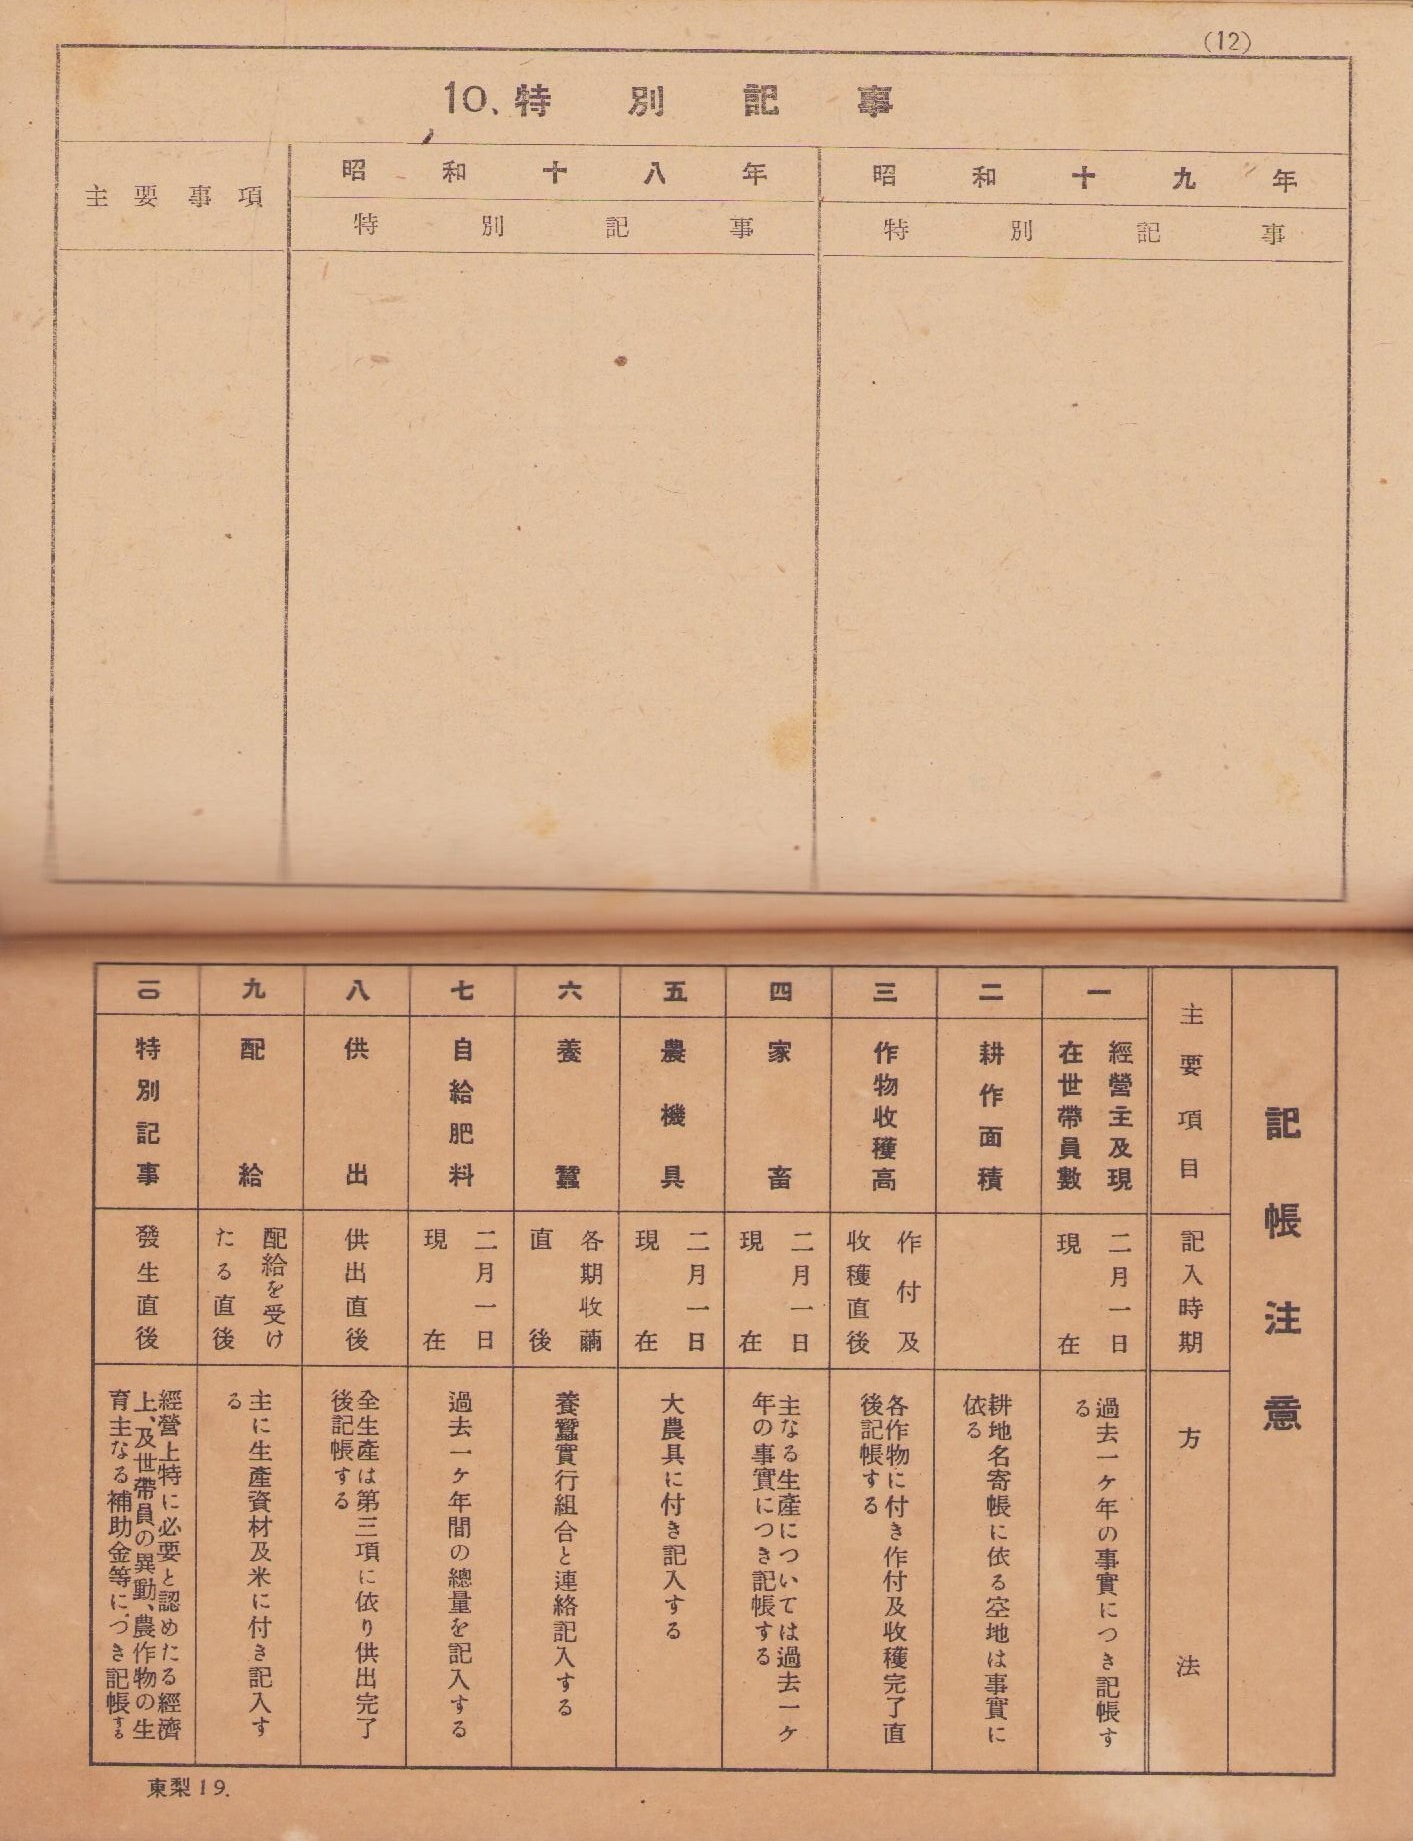 (12)
10、特別記事
主要事項
昭和十八年
特別記事
昭和十九年
特別記事
記帳注意
主要項目
記入時期
方法
一
經營主及現
在世帶員數
二月一日
現在
過去一ヶ年の事實につき記帳す
る
二
耕作面積
耕地名寄帳に依る空地は事實に
依る
三
作物收穫高
作付及
收穫直後
各作物に付き作付及收穫完了直
後記帳する
四
家畜
二月一日
現在
主なる生產については過去一ヶ
年の事實につき記帳する
五
農機具
二月一日
現在
大農具に付き記入する
六
養蠶
各期收繭
直後
養蠶實行組合と連絡記入する
七
自給肥料
二月一日
現在
過去一ヶ年間の總量を記入する
八
供出
供出直後
全生產は第三項に依り供出完了
後記帳する
九
配給
配給を受け
たる直後
主に生產資材及米に付き記入す
る
一〇
特別記事
發生直後
經營上特に必要と認めたる經濟
上、及世帶員の異動、農作物の生
育主なる補助金等につき記帳する
東梨19.